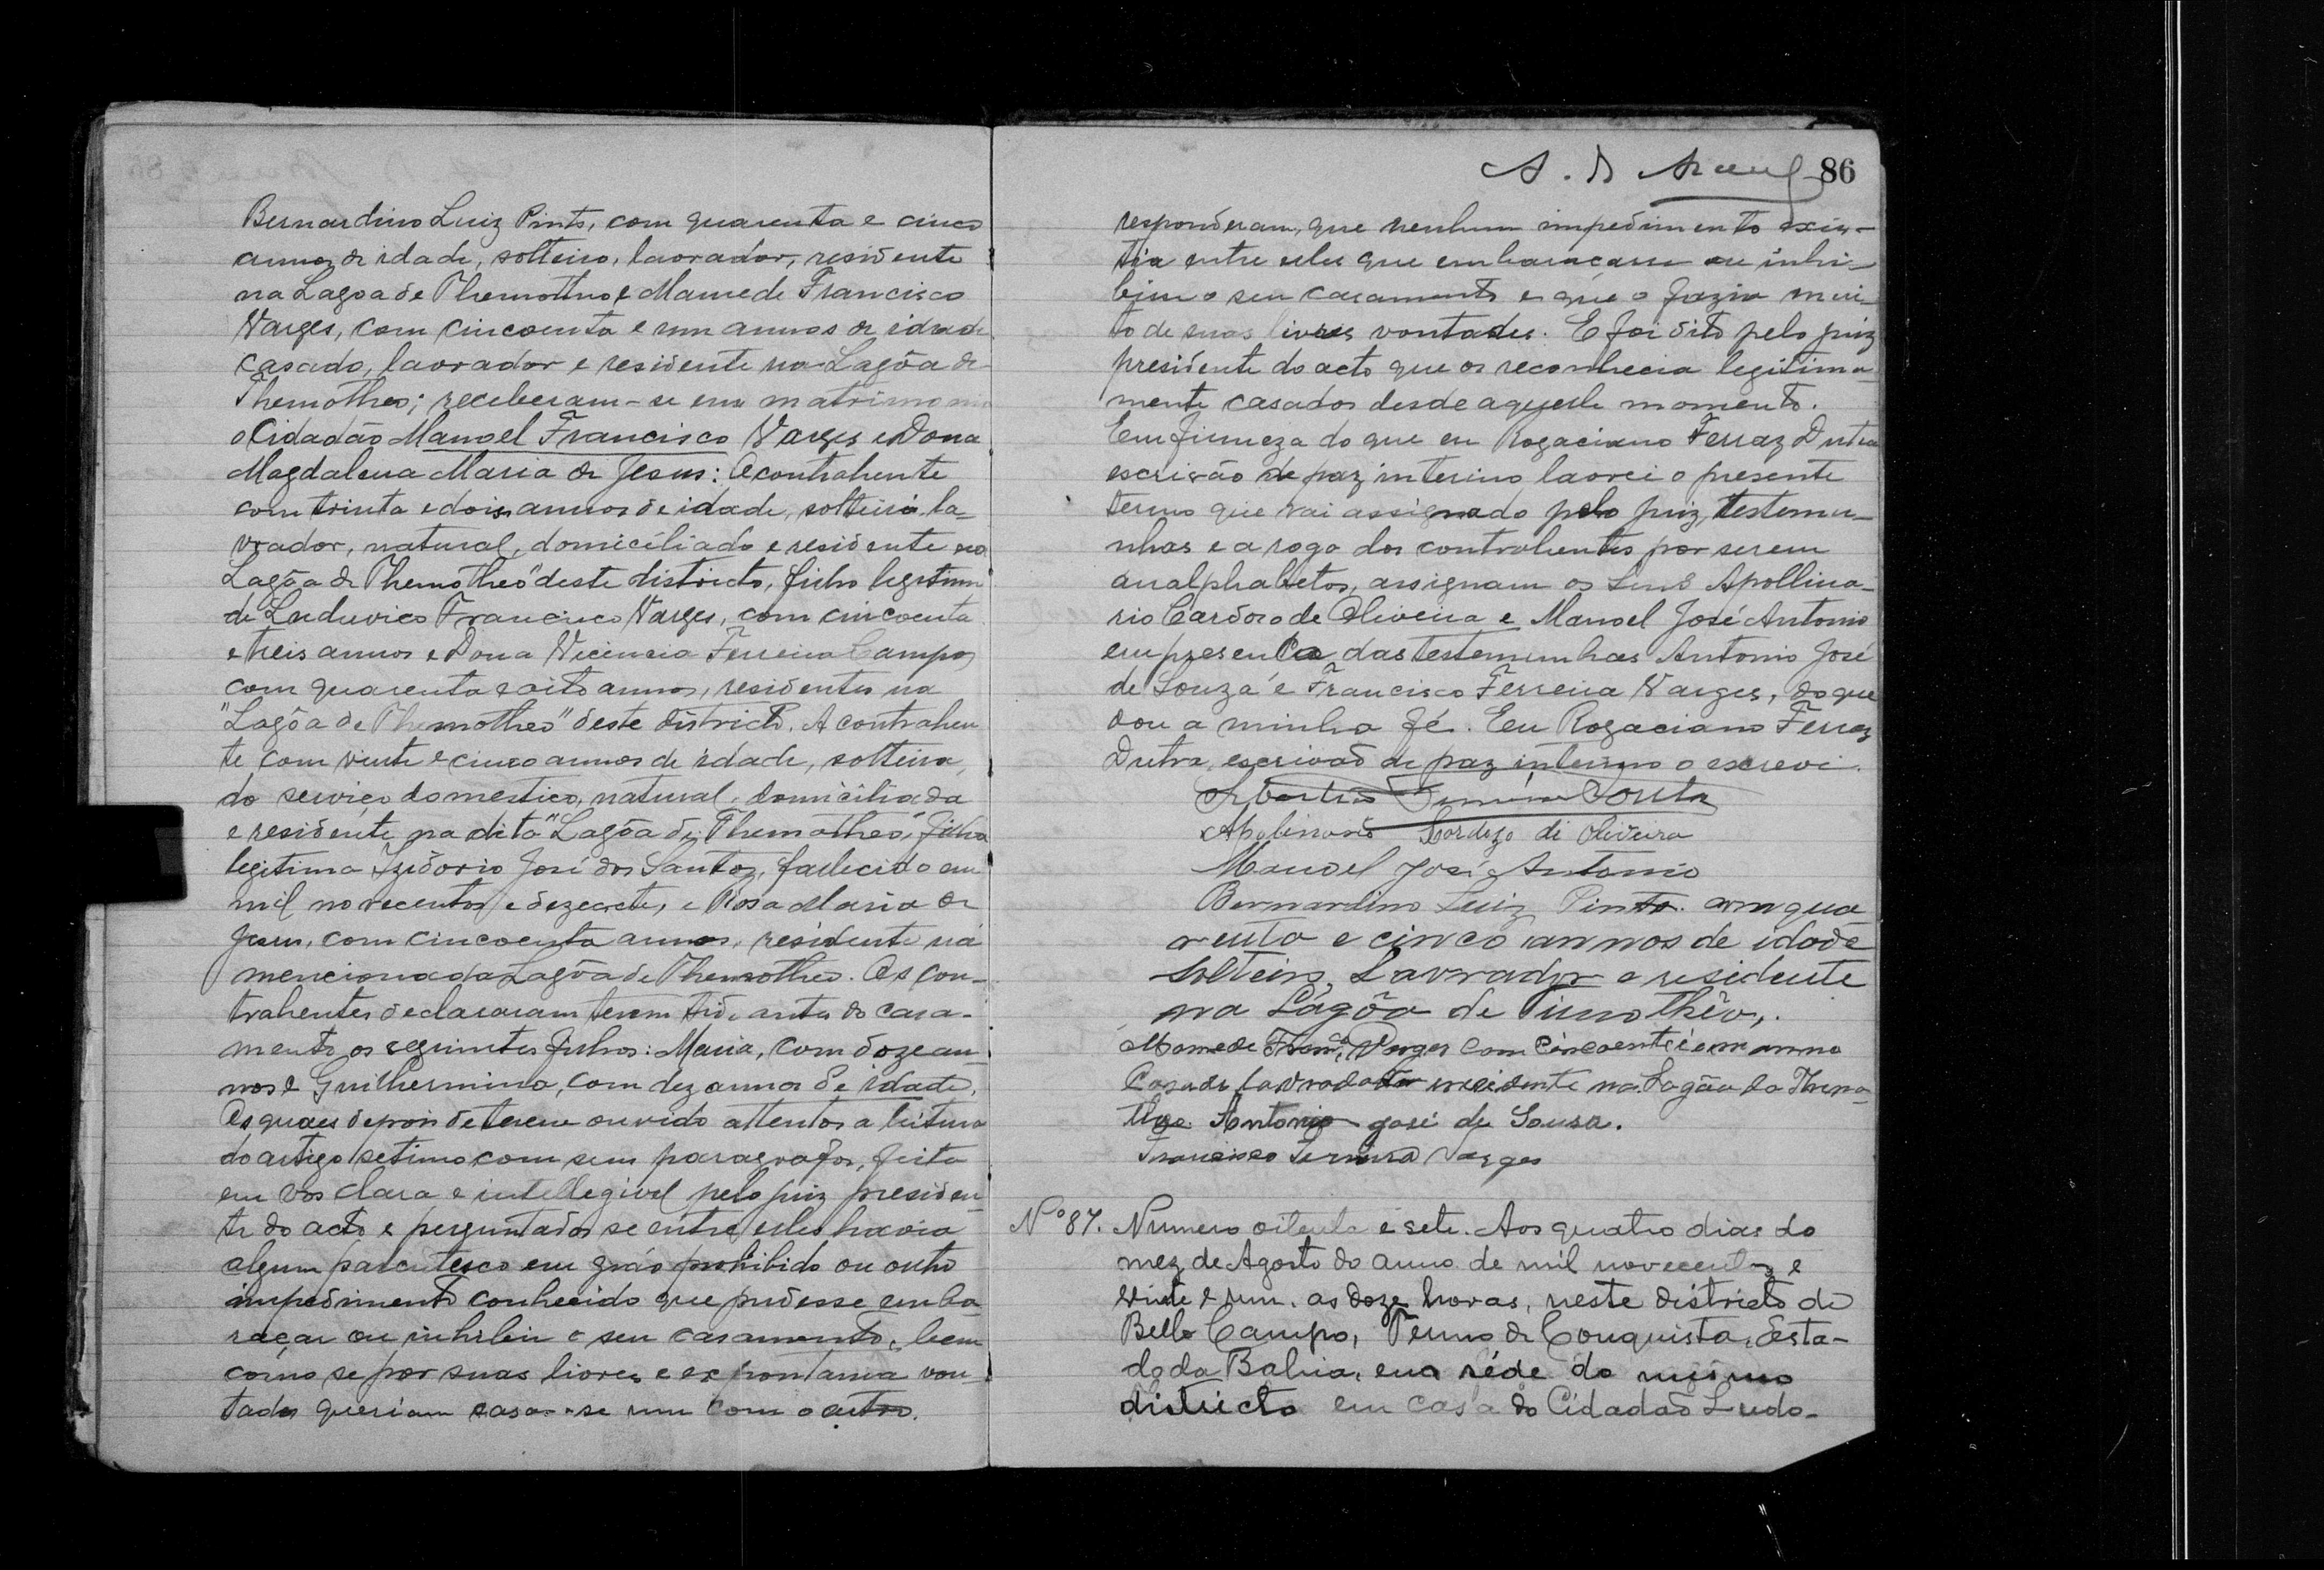 Bernardino Luiz Pinto, com quarenta e cinco
annos de idade, solteiro, lavrador, residente
na Lagoa de Themotheo e Mamede Francisco
Varges, com cincoenta e um annos de idade
casado, lavrador e residente na Lagôa de
Themotheo; receberam-se em matrimonio
o Cidadão Manoel Francisco Varges e Dona
Magdalena Maria de Jesus: O contrahente
com trinta e dois annos de idade, solteiro, la-
vrador, natural, domiciliado e residente na
Lagôa de Themotheo" deste districto, filho legitimo
de Luduvico Francisco Varges, com cincoenta
e treis annos e Dona Vicencia Ferreira Campos
com quarenta e oito annos, residentes na
"Lagôa de Themotheo" deste districto. A contrahen
te com vinte e cinco annos de idade, solteira,
do serviço domestico, natural, domiciliada
e residente na dita "Lagôa de Themotheo", filha
legitima Izidorio José dos Santos, fallecido em
mil novecentos e dezesete, e Rosa Maria de
Jesus, com cincoenta annos, residente na
mencionada Lagôa de Themotheo. Os con-
trahentes declararam terem tido antes do casa-
mento os seguintes filhos: Maria, com doze an-
nos e Guilhermino, com dez annos de idade.
Os quaes depois de terem ouvido attentos a leitura
do artigo setimo com seus paragrafos, feita
em vós clara e intellegivel pelo juiz presiden-
te do acto e perguntados se entre elles havia
algum parentesco em gráo prohibido ou outro
impedimento conhecido que pudesse emba-
raçar ou inhibir o seu casamento, bem
como se por suas livres e expontanea von-
tades queriam casar-se um com o outro.
86
responderam, que nenhum impedimento exis-
tia entre elles que embaraçasse ou inhi-
bisse o seu casamento e que o fazia mui-
to de suas livres vontades. E foi dito pelo juiz
presidente do acto que os reconhecia legitima-
mente casados desde aquelle momento.
Em firmeza do que eu Rogaciano Ferraz Dutra
escrivão de paz interino, lavrei o presente
termo que vai assignado pelo juiz, testemu-
nhas e a rogo dos contrahentes por serem
analphabetos, assignam os Snrs Apollina-
rio Cardoso de Oliveira e Manoel José Antonio
em presença das testemunhas Antonio José
de Souza e Francisco Ferreira Varges, do que
dou a minha fé. Eu Rogaciano Ferraz
Dutra, escrivão de paz interino o escrevi.
Apolinario Cardozo di Oliveira
Manoel José Antonio
Bernardino Luiz Pinto. com qua
renta e cinco annos de idade
solteiro, Lavrador e residente
na Lágôa de Timothêo,.
Mamede Franco Varges com cincoenta e um anno
Casado lavrador e residente na Lagôa do Themo-
theo Antonio josé de Sousa.
Francisco Ferreira Varges
Nº 87. Numero oitenta e sete. Aos quatro dias do
mez de Agosto do anno de mil novecentos e
vinte e um, as doze horas, neste districto de
Bello Campo, Termo de Conquista, Esta-
do da Bahia, em séde do mesmo
districto em casa do Cidadão Ludo-